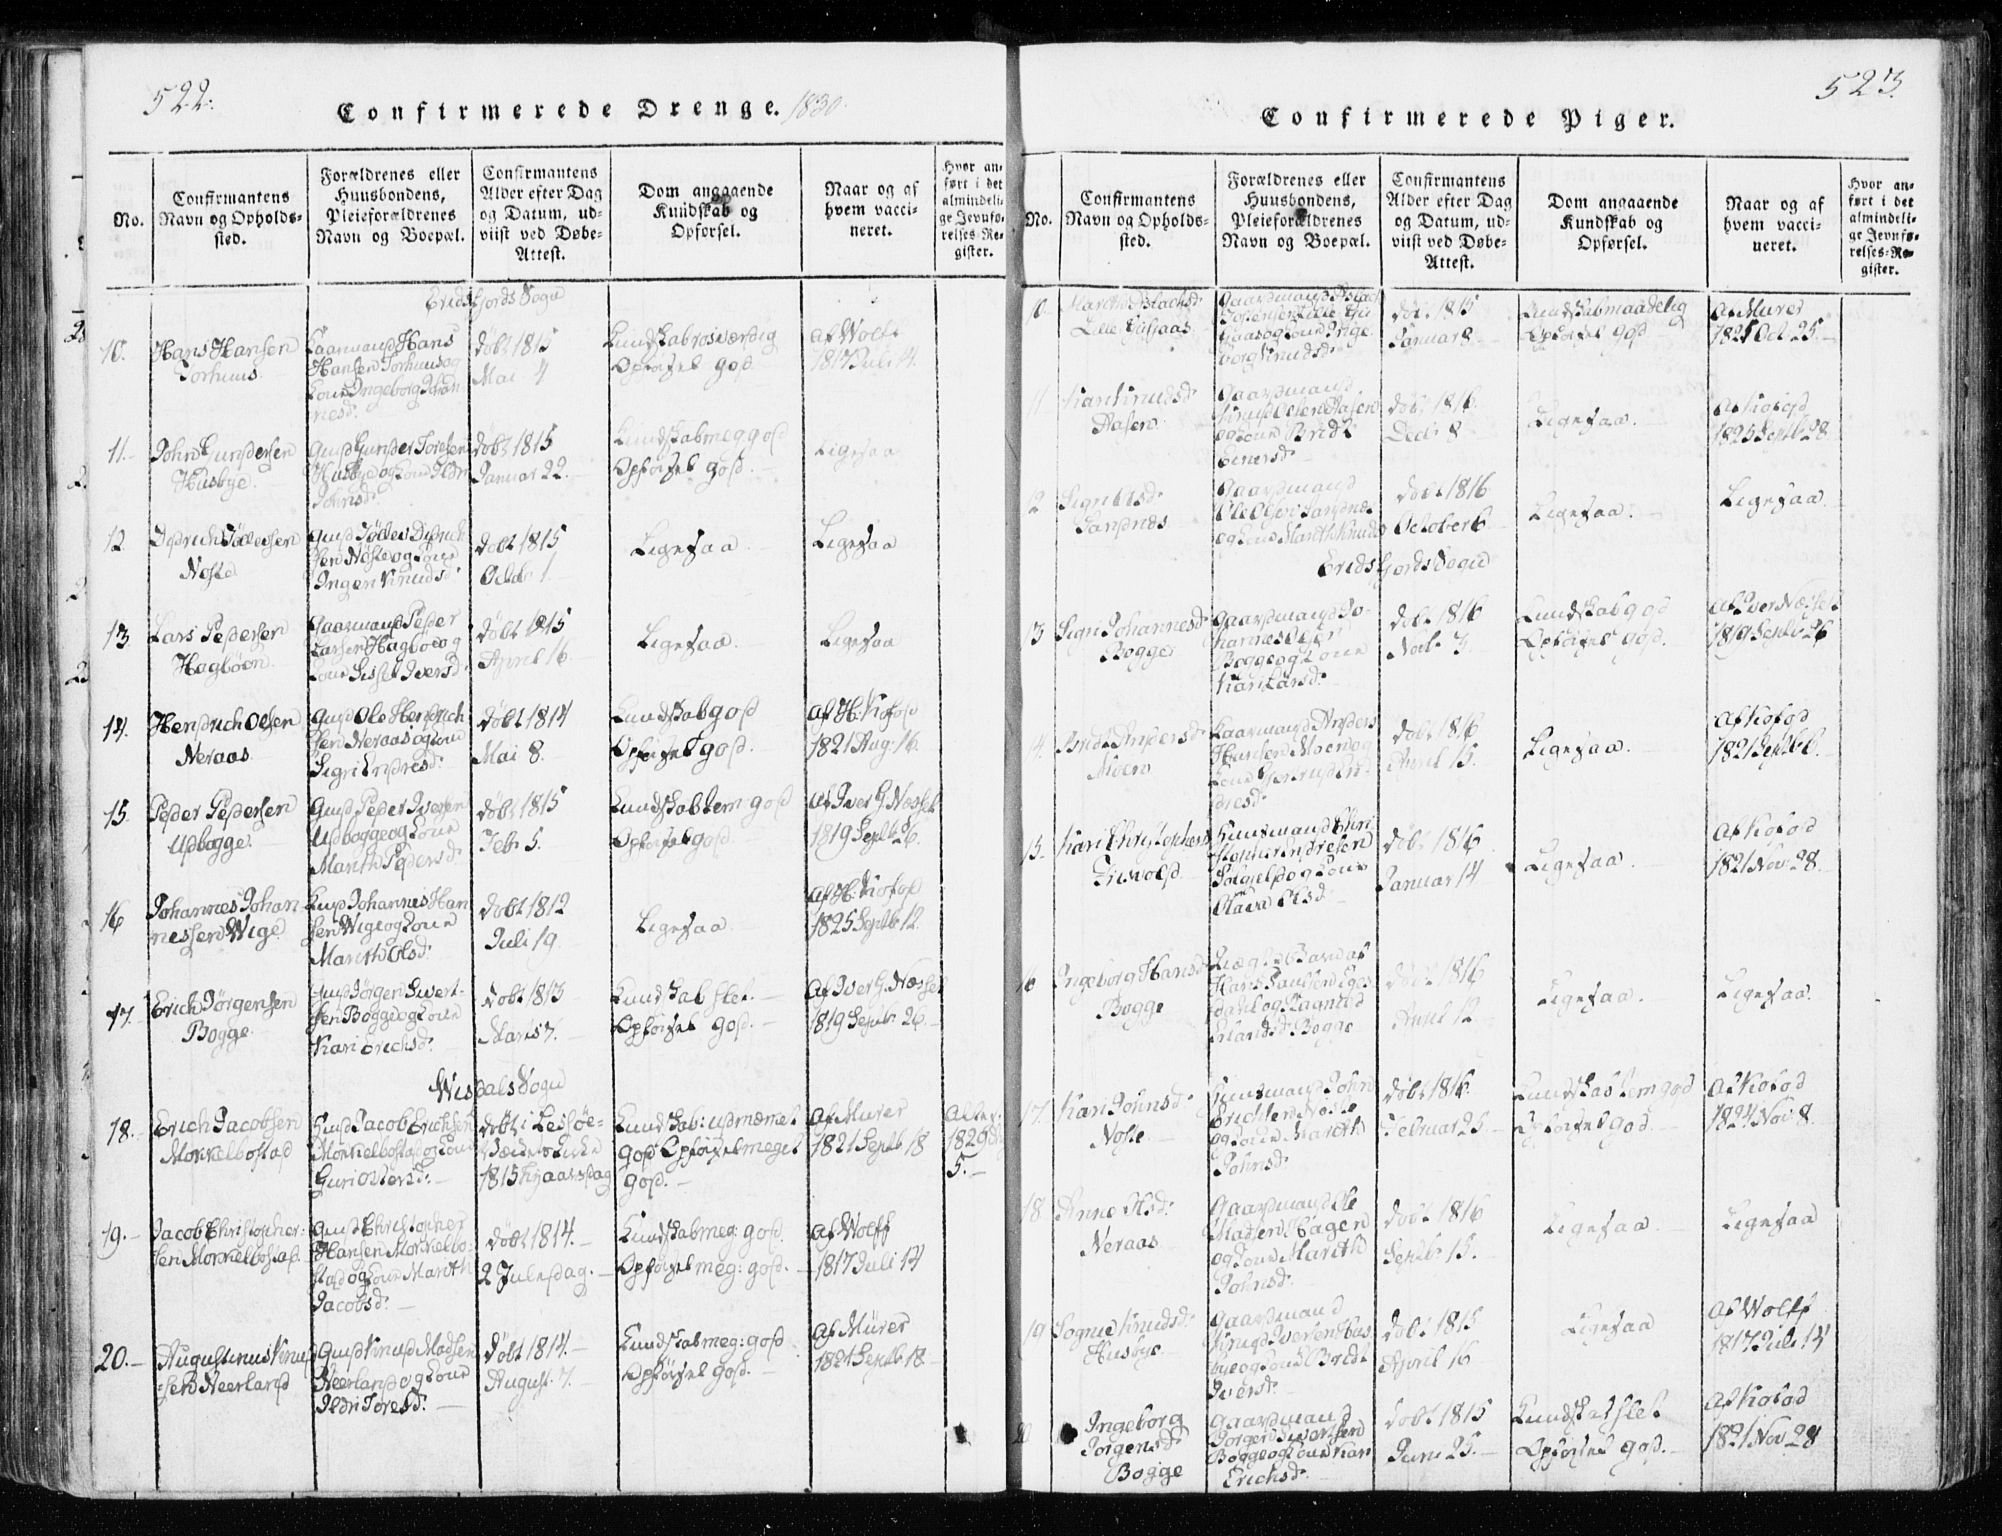 522.
Confirmerede Drenge. 1830.
No.
Confirmantens
Navn og Opholds-
sted.
Forældrenes eller
Huusbondens,
Pleieforældrenes
Navn og Boepæl.
Confirmantens
Alder efter Dag
og Datum, ud-
viist ved Døbe-
Attest.
Dom angaaende
Kundskab og
Opførsel.
Naar og af
hvem vacci-
neret.
Hvor an-
ført i det
almindeli-
ge Jevnfø-
relses-Re-
gister.
Eridsfjords Sogn
10.
Hans Hansen
Torhuus
Gaarmand Hans
Hansen Torhuus og
Kone Ingeborg Johan
nesd:
døbt 1815
Mai 4
Kundskab rosværdig
Opførsel god
af Wolff
1817 Juli 14.
11.
John Gundersen
Husbye.
Gmd Gunder Toresen
Husbye og Kone Ildri
Johnsd:
døbt 1815
Januar 22.
Kundskab meg god
Opførsel god.
Ligesaa
12
Didrich Tøllessen
Noste
Gmd Tølles Didrich
sen Noste og Kone
Ingeri Knudsd:
døbt 1815
Octbr 1
Ligesaa
Ligesaa
13
Lars Pedersen
Hagbøen
Gaarmand Peder
Larsen Hagbø og
Kone Sissel Iversd:
døbt 1815
April 16.
Ligesaa.
Ligesaa
14.
Hendrich Olsen
Neraas.
Gmd Ole Hendrich
sen Neraas og Kone
Sigri Endresd:
døbt 1814
Mai 8.
Kundskab god
Opførsel god.
Af H. Kofod
1821 Aug: 16.
15.
Peder Pedersen
Udbogge.
Gmd Peder Iversen
Udbogge og Kone
Marith Pedersd:
døbt 1815
Febr 5.
Kundskab tem. god
Opførsel god.
Af Iver G. Næsset
1819 Septbr 26.
16
Johannes Johan
nessen Wige
Gmd Johannes Han
sen Wige og Kone
Marith Olsd:
døbt 1812
Juli 19.
Ligesaa.
Af H. Kofod
1825 Septbr 12.
17.
Erich Jørgensen
Bogge.
Gmd Jørgen Sivert-
sen Bogge og Kone
Kari Erichsd:
døbt 1813
Marts 7.
Kundskab slet.
Opførsel god.
Af Iver G. Næsset
1819 Septbr 26.
Wisdals Sogn
18.
Erich Jacobsen
Morkelbostad
Gmd Jacob Erichsen
Morkelbostad og Kone
Guri Olsd:
døbt i Lessøe-
1815 Nyaarsdag
Kundskab: udmærket
god Opførsel meget
god.
Af Murer
1821 Septbr 18
1829
5.
19.
Jacob Christopher-
sen Morkelbostad.
Gmd Christopher
Hansen Morkelbo-
stad og Kone Marith
Jacobsd:
døbt 1814.
2 Juledag.
Kundskab meg: god.
Opførsel meg: god.
Af Wolff
1817 Juli 14
20.
Augustinus Knud
sen Neerland
Gmd Knud Madsen
Neerland og Kone
Ildri Toresd:
Døbt 1814.
August 7.
Kundskab meg: god
Opførsel god.
Af Mürer
1821 Septbr 18.
523.
Confirmerede Piger.
No.
Confirmantens
Navn og Opholds-
sted.
Forældrenes eller
Huusbondens,
Pleieforældrenes
Navn og Boepæl.
Confirmantens
Alder efter Dag
og Datum, ud-
viist ved Døbe-
Attest.
Dom angaaende
Kundskab og
Opførsel.
Naar og af
hvem vacci-
neret.
Hvor an-
ført i det
almindeli-
ge Jevnfø-
relses-Re-
gister.
10.
døbt 1815
Januar 8
Kundskab maadelig
Opførsel god
Af Murer
1821 Oct 25.
11
Kari Knudsd:
Aasen
Gaardmand
Knud Olsen Aasen
og Kone Bridt
Einersd:
døbt 1816.
Decbr 8
Ligesaa.
Af Kofod
1825 Septbr 28
12
Sigri Olsd:
Sandnæs
Gaardmand
og Kone Marith Knuds
døbt 1816
October 6
Ligesaa.
Ligesaa
Eridsfjords Sogn
13
Sigri Johannesd:
Bogge
Gaardmand Jo-
hannes
Bogge og Kone
Kari Larsd:
døbt 1816
Novbr 3.
Kundskab god
Opførsel god.
Af Iver Næsset
1819 Septbr 26
14
Bridt Andersd:
Moen
Gaarmand Anders
Hansen Moen og
Kone Gjertrud En-
dresd:
døbt 1816
April 15.
Ligesaa.
Af Kofod
1821 Septbr 6.
15.
Kari Christophersd:
Huusmand Chri-
stopher Endresen
og Kone
Olava Olsd:
døbt 1816
Januar 14
Ligesaa.
Af Kofod
1821 Nov 28.
16
Ingeborg Hansd:
Bogge
døbt 1816
April 12
Ligesaa.
Ligesaa.
17.
Kari Johnsd:
Noste
Huusmand John
Erichsen Noste
og Kone Marith
Johnsd:
døbt 1816.
Februar 25.
Kundskab tem god
Opførsel god.
Af Kofod
1824 Nov 8.
18
Anne Olsd:
Neraas
Gaardmand Ole
Madsen Hagen
og Kone Marith
Johnsd:
døbt 1816
Septbr 15.
Ligesaa
Ligesaa
19
Sogne Knudsd:
Husbye.
Gaardmand
Knud Iversen Hus
bye og Kone Bridt
Iversd:
døbt 1815
April 16
Ligesaa
Af Wolff
1817 Juli 14
20
Ingeborg
Jorgensd:
Bogge
Gaardmand
Jorgen Sivertsen
Bogge og Kone Kari
Erichsd:
døbt 1815
Juni 25.
Kundskab slet
Opførsel god.
Af Kofod
1821 Nov 28